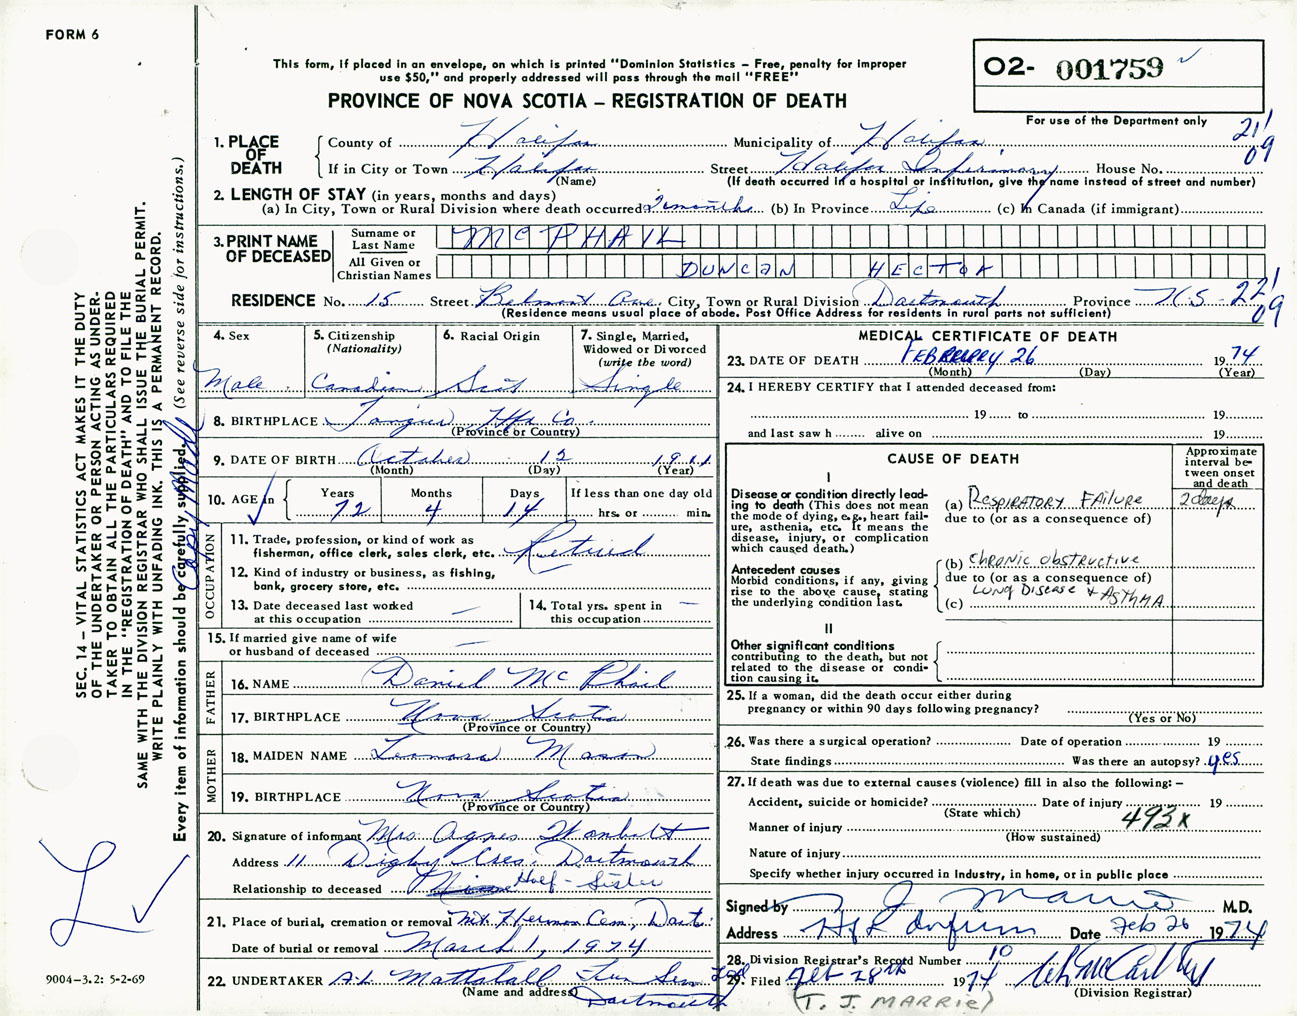 FORM 6
This form, if placed in an envelope, on which is printed "Dominion Statistics – Free, penalty for improper
use $50," and properly addressed will pass through the mail "FREE"
PROVINCE OF NOVA SCOTIA – REGISTRATION OF DEATH
02- 001759
For use of the Department only
21/09
1. PLACE OF DEATH
County of Halifax Municipality of Halifax
If in City or Town Halifax Street Halifax Infirmary House No.
(Name) (If death occurred in a hospital or institution, give the name instead of street and number)
2. LENGTH OF STAY (in years, months and days)
(a) In City, Town or Rural Division where death occurred 2 months (b) In Province Life (c) In Canada (if immigrant)
3. PRINT NAME OF DECEASED
Surname or Last Name MCPHAIL
All Given or Christian Names DUNCAN HECTOR
RESIDENCE No. 15 Street Belmont Ave. City, Town or Rural Division Dartmouth Province N.S. 22/09
(Residence means usual place of abode. Post Office Address for residents in rural parts not sufficient)
4. Sex Male
5. Citizenship (Nationality) Canadian
6. Racial Origin Scots
7. Single, Married, Widowed or Divorced (write the word) Single
8. BIRTHPLACE Tangier Hfx Co.
(Province or Country)
9. DATE OF BIRTH October 12 1911
(Month) (Day) (Year)
10. AGE in Years 72 Months 4 Days 14 If less than one day old hrs. or min.
OCCUPATION
11. Trade, profession, or kind of work as fisherman, office clerk, sales clerk, etc. Retired
12. Kind of industry or business, as fishing, bank, grocery store, etc.
13. Date deceased last worked at this occupation —
14. Total yrs. spent in this occupation —
15. If married give name of wife or husband of deceased —
FATHER
16. NAME Daniel McPhail
17. BIRTHPLACE Nova Scotia
(Province or Country)
MOTHER
18. MAIDEN NAME Leonora Mason
19. BIRTHPLACE Nova Scotia
(Province or Country)
20. Signature of informant Mrs. Agnes
Address 11 Digby Cres. Dartmouth
Relationship to deceased Half-Sister
21. Place of burial, cremation or removal Mt. Hermon Cem., Dart.
Date of burial or removal March 1, 1974
22. UNDERTAKER A.L. Mattatall Fun Serv Ltd
(Name and address) Dartmouth
MEDICAL CERTIFICATE OF DEATH
23. DATE OF DEATH FEBRUARY 26 1974
(Month) (Day) (Year)
24. I HEREBY CERTIFY that I attended deceased from:
19 to 19
and last saw h alive on 19
CAUSE OF DEATH
Approximate interval between onset and death
I
Disease or condition directly leading to death (This does not mean the mode of dying, e.g., heart failure, asthenia, etc. It means the disease, injury, or complication which caused death.)
(a) RESPIRATORY FAILURE 2 days
due to (or as a consequence of)
Antecedent causes
Morbid conditions, if any, giving rise to the above cause, stating the underlying condition last.
(b) CHRONIC OBSTRUCTIVE
due to (or as a consequence of)
LUNG DISEASE & ASTHMA
(c)
II
Other significant conditions
contributing to the death, but not related to the disease or condition causing it.
25. If a woman, did the death occur either during pregnancy or within 90 days following pregnancy?
(Yes or No)
26. Was there a surgical operation? Date of operation 19
State findings Was there an autopsy? yes
27. If death was due to external causes (violence) fill in also the following: –
Accident, suicide or homicide? Date of injury 19
(State which)
Manner of injury 493x
(How sustained)
Nature of injury
Specify whether injury occurred in Industry, in home, or in public place
Signed by T J Marrie M.D.
Address Hfx Infirm Date Feb 26 1974
28. Division Registrar's Record Number 10
29. Filed Feb 28th 1974
(Division Registrar)
(T. J. MARRIE)
SEC. 14 – VITAL STATISTICS ACT MAKES IT THE DUTY
OF THE UNDERTAKER OR PERSON ACTING AS UNDER-
TAKER TO OBTAIN ALL THE PARTICULARS REQUIRED
IN THE "REGISTRATION OF DEATH" AND TO FILE THE
SAME WITH THE DIVISION REGISTRAR WHO SHALL ISSUE THE BURIAL PERMIT.
WRITE PLAINLY WITH UNFADING INK. THIS IS A PERMANENT RECORD.
Every item of information should be carefully supplied. (See reverse side for instructions.)
9004–3.2: 5-2-69